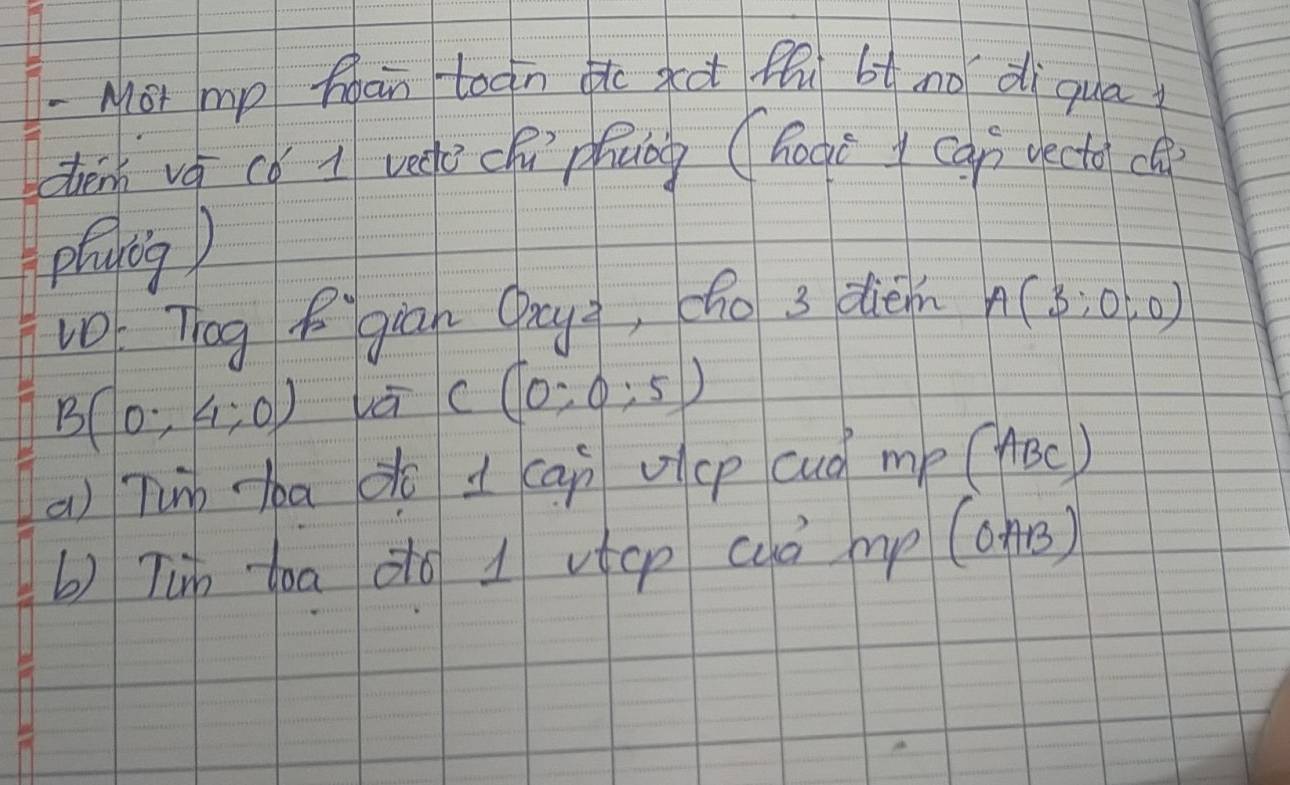 - Một mp hoàn toàn đc xđ khi bt nó đi qua 1
điểm và có 1 vectơ chỉ phươg (hoặc 1 cặp vectơ chỉ
phươg)
VD: Trog k° gian Oxyz, cho 3 điểm A(3;0;0)
B(0;4;0) và C (0;0;5)
a) Tìm tọa độ 1 cặp vtcp của mp (ABC)
b) Tìm tọa độ 1 vtcp của mp (OAB)